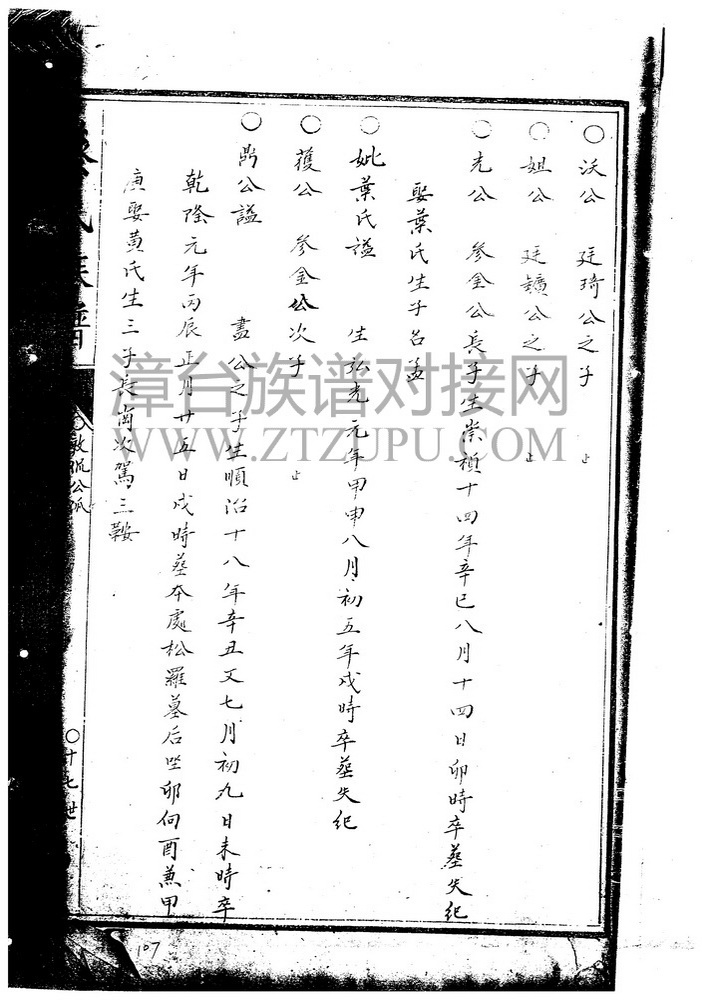 ○沃公 廷琦公之子 止
○姐公 廷鑛公之子 止
○光公 參金公長子生崇禎十四年辛巳八月十四日卯時卒葬失纪
娶葉氏生子名孟
○妣葉氏諡 生弘光元年甲申八月初五年戍時卒葬失纪
○䕶公 參金公次子 止
○鼎公諡 盡公之子生順治十八年辛丑又七月初九日未時卒
乾隆元年丙辰正月廿五日戍時葬夲處松羅墓后坐卯向酉兼甲
庚娶黄氏生三子長尚次駕三鞍
氏族譜
○敦侃公派
○十七世
107
漳台族谱对接网
WWW.ZTZUPU.COM